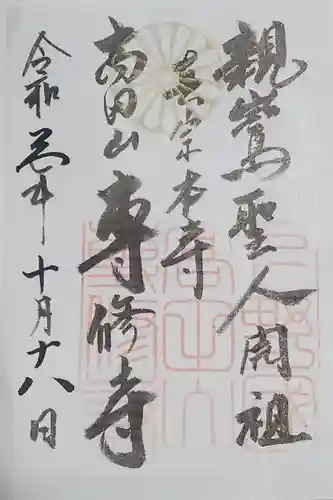 親鸞聖人開祖
真宗本寺
高田山
専修寺
令和元年十月十八日